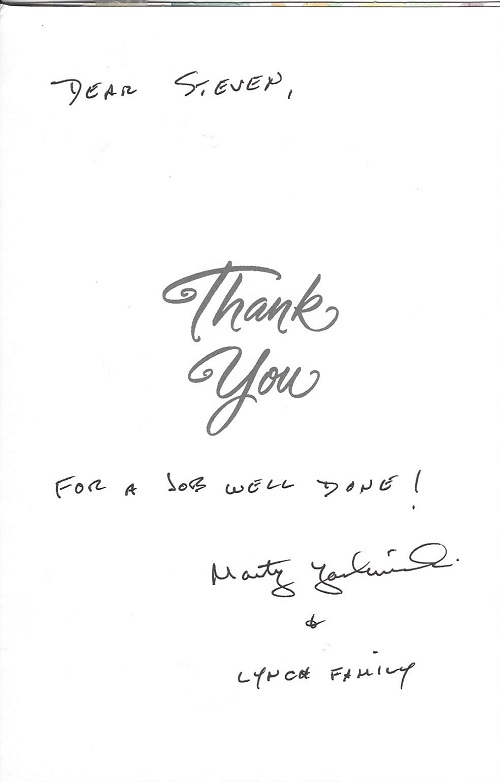 DEAR STEVEN,
Thank
You
FOR A JOB WELL DONE!
Marty
&
LYNCH FAMILY